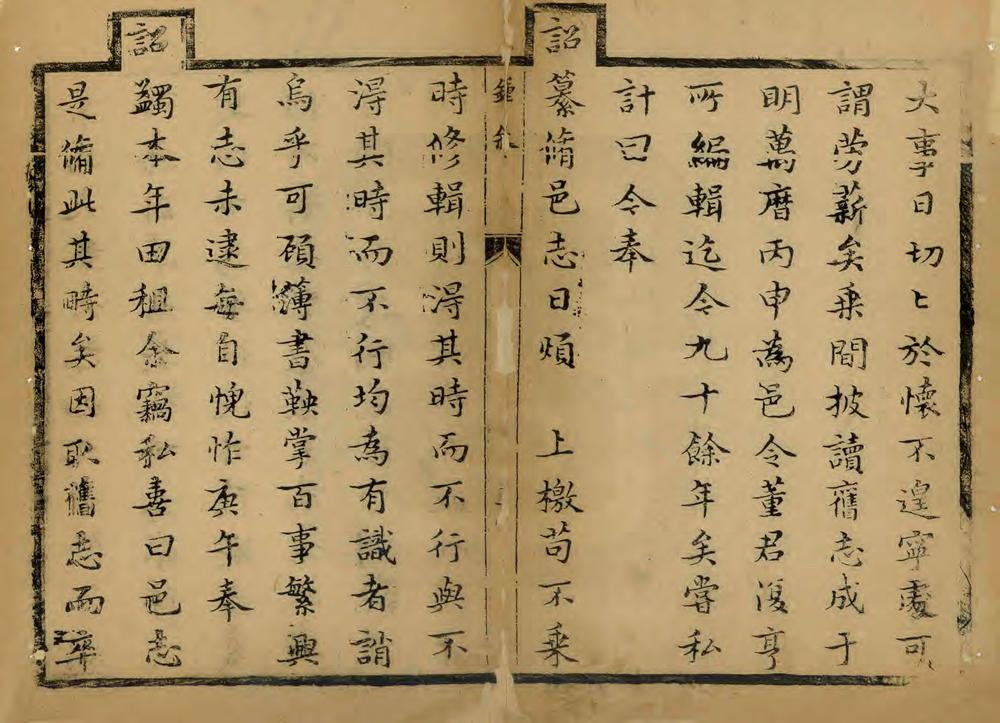 大事日切匕於懷不遑寧處可
謂勞薪矣乗間披讀舊志成于
明萬曆丙申為邑令董君復亨
所編輯迄今九十餘年矣嘗私
計曰今奉
詔纂脩邑志日煩　上檄苟不乗
時修輯則得其時而不行與不
得其時而不行均為有識者誚
烏乎可顧簿書鞅掌百事繁興
有志未逮每自愧怍庚午奉
詔蠲本年田租余竊私喜曰邑志
是脩此其時矣因取舊志而卒